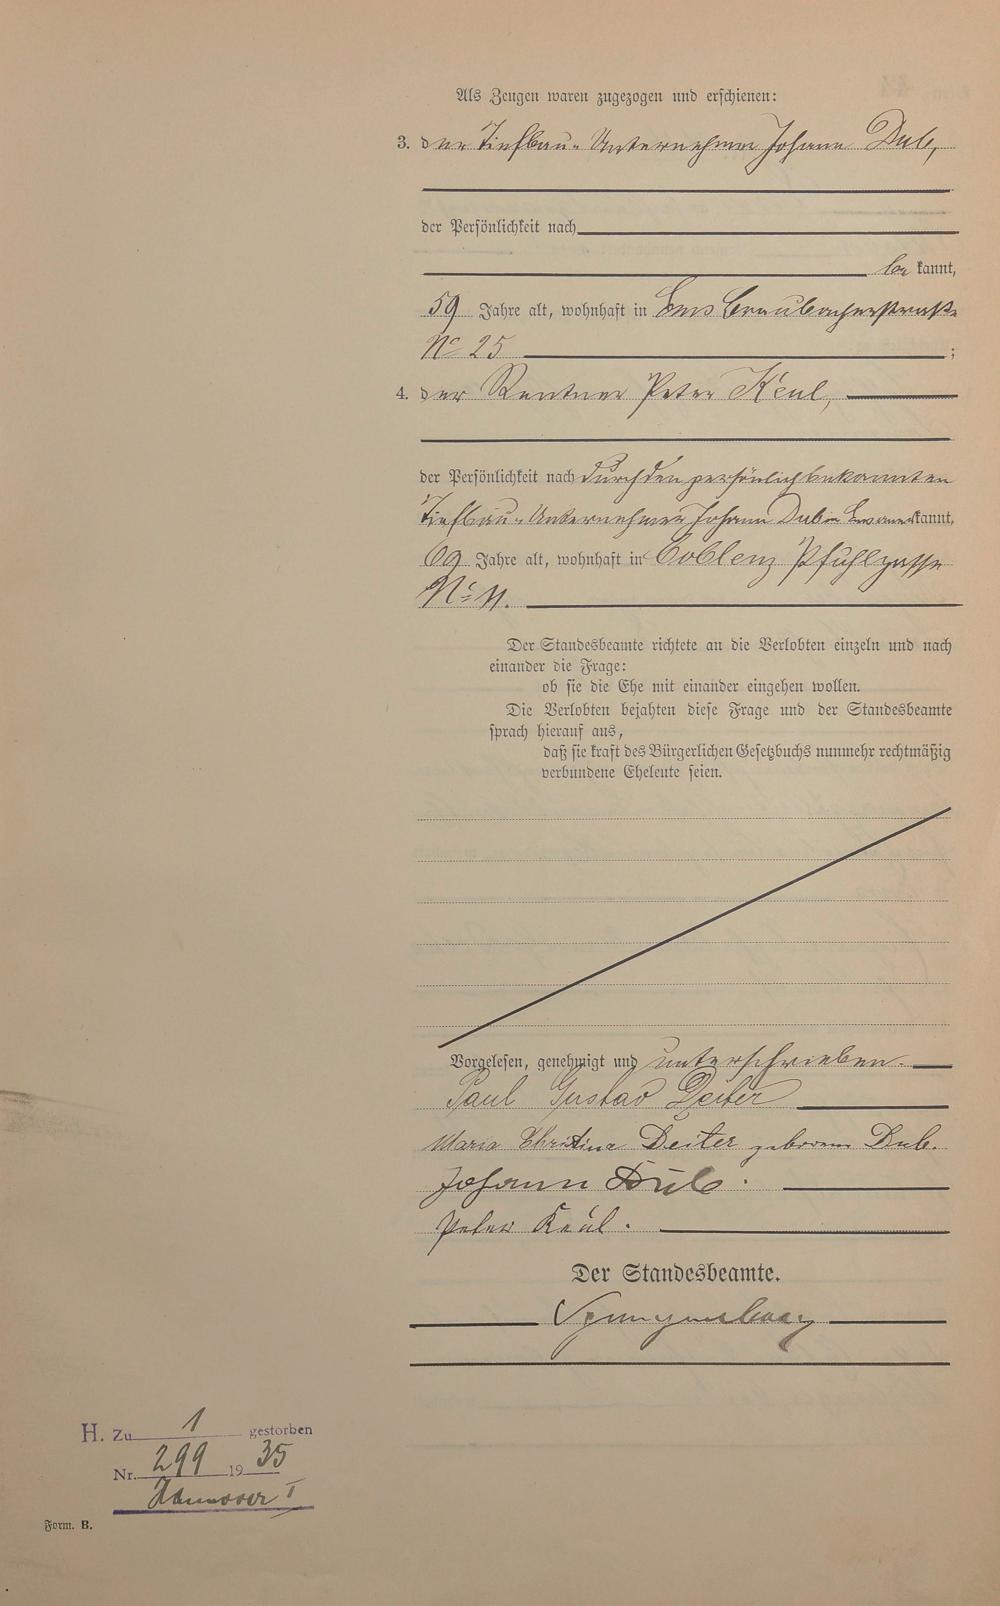 Als Zeugen waren zugezogen und erschienen:
3. der Tiefbau-Unternehmer Johann Dub,
der Persönlichkeit nach
be kannt,
59 Jahre alt, wohnhaft in Ems Braubacherstraße
No 25 ;
4. der Rentner Peter Keul,
der Persönlichkeit nach durch den persönlich bekannten
Tiefbau-Unternehmer Johann Dub in Ems anerkannt,
69 Jahre alt, wohnhaft in Coblenz Pfuhlgasse
No 11.
Der Standesbeamte richtete an die Verlobten einzeln und nach
einander die Frage:
ob sie die Ehe mit einander eingehen wollen.
Die Verlobten bejahten diese Frage und der Standesbeamte
sprach hierauf aus,
daß sie kraft des Bürgerlichen Gesetzbuchs nunmehr rechtmäßig
verbundene Eheleute seien.
Vorgelesen, genehmigt und unterschrieben.
Paul Gustav Deiter
Maria Christina Deiter geborene Dub.
Johann Dub.
Peter Keul.
Der Standesbeamte.
H. Zu 1 gestorben
Nr. 299 19 35
Hannover I
Form. B.